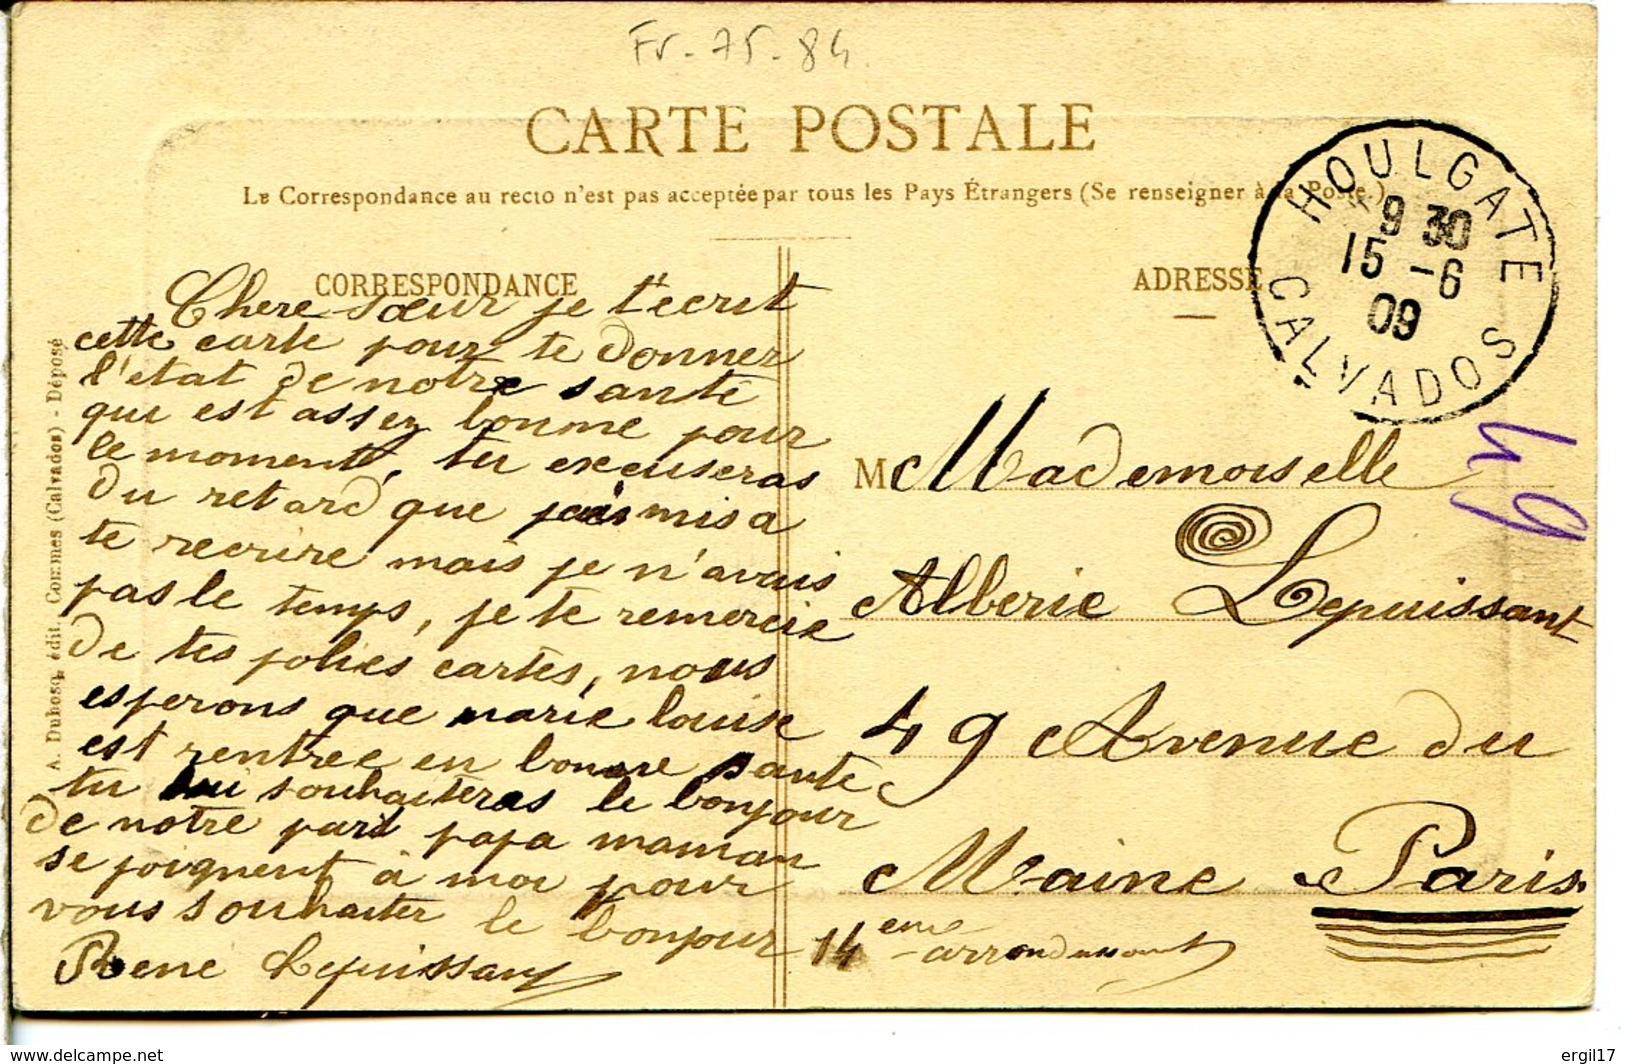 Fr-75-84
CARTE POSTALE
La Correspondance au recto n'est pas acceptée par tous les Pays Étrangers (Se renseigner à la Poste.)
CORRESPONDANCE
Chere sœur je t'ecrit
cette carte pour te donner
l'etat de notre santé
qui est assez bonne pour
le moment, tu excuseras
du retard que j'ai mis a
te recrire mais je n'avais
pas le temps, je te remercie
de tes jolies cartes, nous
esperons que marie louise
est rentree en bonne santé
tu lui souhaiteras le bonjour
de notre part papa maman
se joignent à moi pour
vous souhaiter le bonjour
Rene Lepuissant
A. Dubosq, édit. Commes (Calvados) - Déposé
ADRESSE
HOULGATE
9 30
15 -6
09
CALVADOS
49
M Mademoiselle
Alberie Lepuissant
49 Avenue du
Maine Paris
14 eme arrondissant
delcampe.net
ergil17